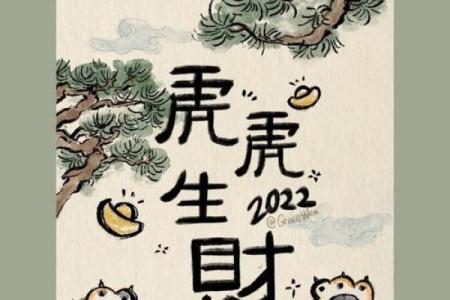 虎虎
生
財
2022